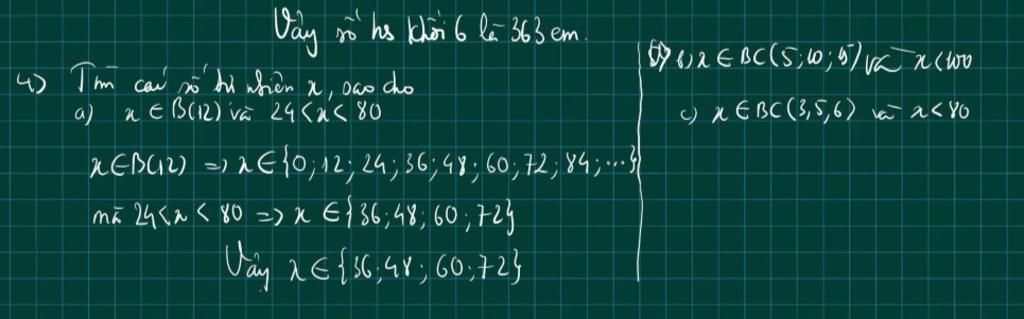 Vậy số hs khối 6 là 363 em.
4) Tìm các số tự nhiên x, sao cho
a) x ∈ B(12) và 24 < x < 80
x ∈ B(12) => x ∈ {0; 12; 24; 36; 48; 60; 72; 84; ...}
mà 24 < x < 80 => x ∈ {36; 48; 60; 72}
Vậy x ∈ {36; 48; 60; 72}
b) x ∈ BC(5; 10; 15) và x < 100
c) x ∈ BC(3, 5, 6) và x < 80